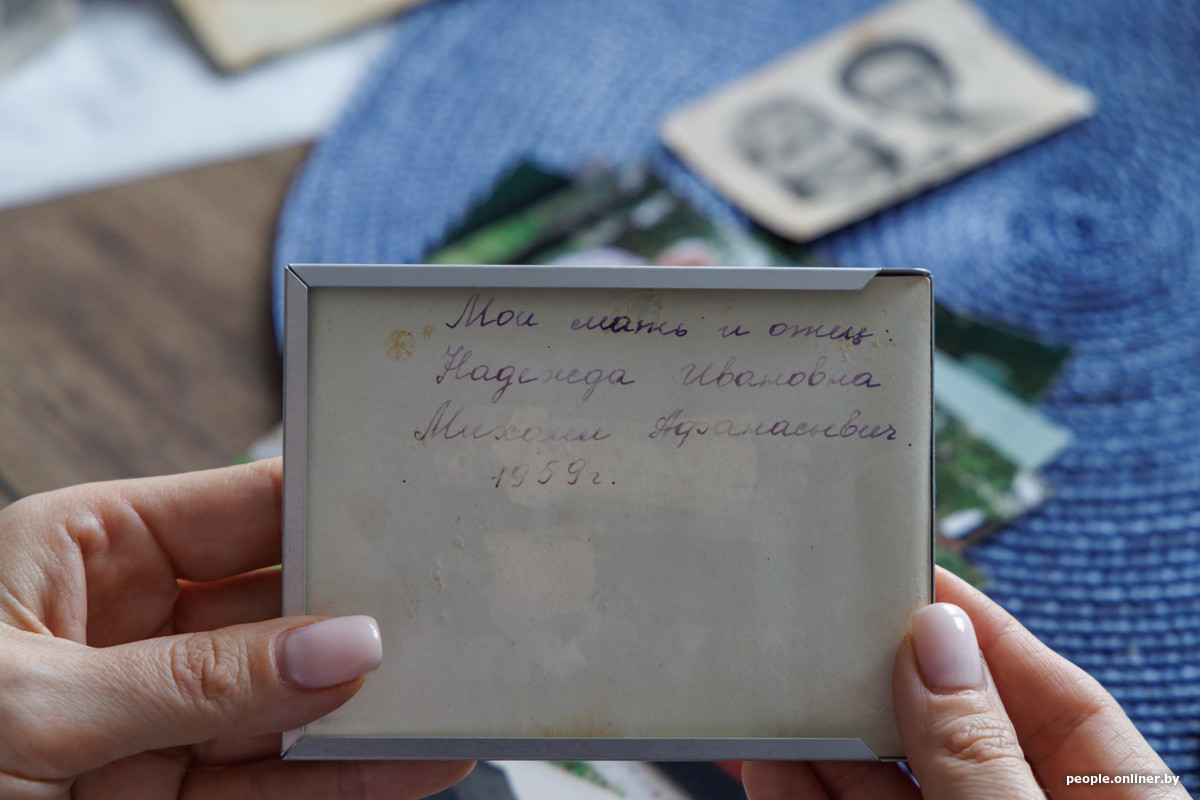 Мои мать и отец:
Надежда Ивановна
Михаил Афанасьевич.
1959г.
people.onliner.by